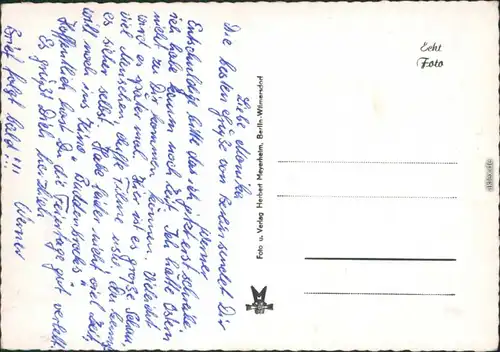 Liebe Monika
Die besten Grüße vom Ferien sendet Dir
Werner
Entschuldige bitte das ich jetzt erst schreibe
ich habe kaum noch Zeit. Ich hätte Ostern
nicht zu Dir kommen können, Vieleicht
wird es später mal. Hier ist es große Schau,
viel Menschen, dufte Filme usw. Du kennst
es sicher selbst. Habe leider nicht viel Zeit,
will noch ins Kino "Buddenbrooks"
Hoffentlich hast Du die Feiertage gut verlebt.
Es grüßt Dich herzlich
Werner
Brief folgt bald!!!
Foto u. Verlag Herbert Meyerheim, Berlin-Wilmersdorf
Echt
Foto